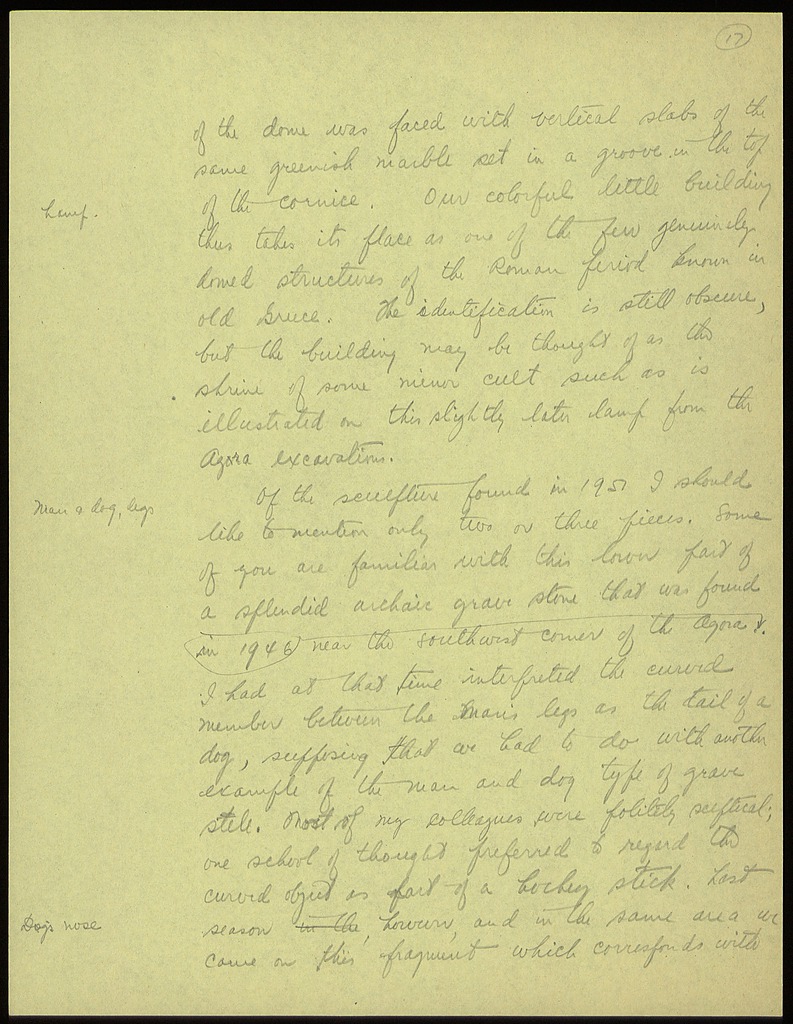 17
of the dome was faced with vertical slabs of the
same greenish marble set in a groove in the top
Lamp.
of the cornice. Our colorful little building
thus takes its place as one of the few genuinely
domed structures of the Roman period known in
old Greece. The identification is still obscure,
but the building may be thought of as the
shrine of some minor cult such as is
illustrated on this slightly later lamp from the
Agora excavations.
Man & dog, legs
Of the sculpture found in 1951 I should
like to mention only two or three pieces. Some
of you are familiar with this lower part of
a splendid archaic grave stone that was found
in 1946 near the southwest corner of the Agora.
I had at that time interpreted the curved
member between the man's legs as the tail of a
dog, supposing that we had to do with another
example of the man and dog type of grave
stele. Most of my colleagues were politely sceptical;
one school of thought preferred to regard the
curved object as part of a hockey stick. Last
Dog's nose
season in the, however, and in the same area we
came on this fragment which corresponds with